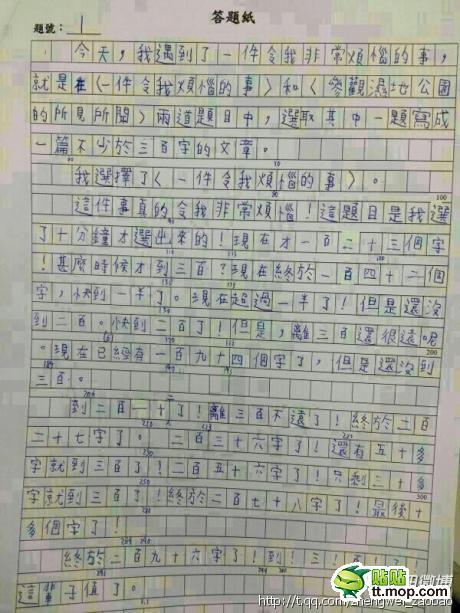 答題紙
題號：1
今天，我遇到了一件令我非常煩惱的事，
就是在〈一件令我煩惱的事〉和〈參觀濕地公園
的所見所聞〉兩道題目中，選取其中一題寫成
一篇不少於三百字的文章。
我選擇了〈一件令我煩惱的事〉。
100
這件事真的令我非常煩惱！這題目是我選
了十分鐘才選出來的！現在才一百二十三個字
！甚麼時候才到三百？現在終於一百四十二個
字，快到一半了。現在超過一半了！但是還沒
到二百。快到二百了！但是，離三百還很遠呢
200
。現在已經有一百九十四個字了，但是還沒到
三百。
到二百一十了！離三百不遠了！終於二百
二十七字了。二百三十六字了！還有五十多
字就到三百了！二百五十六字了！只剩三十多
300
字就到三百了！終於二百七十八字了！最後十
多個字了！
終於二百九十六字了！到！三！百！了！
這輩子值了。
微博
貼貼
tt.mop.com
http://t.qq.com/zhengwei_zaobao